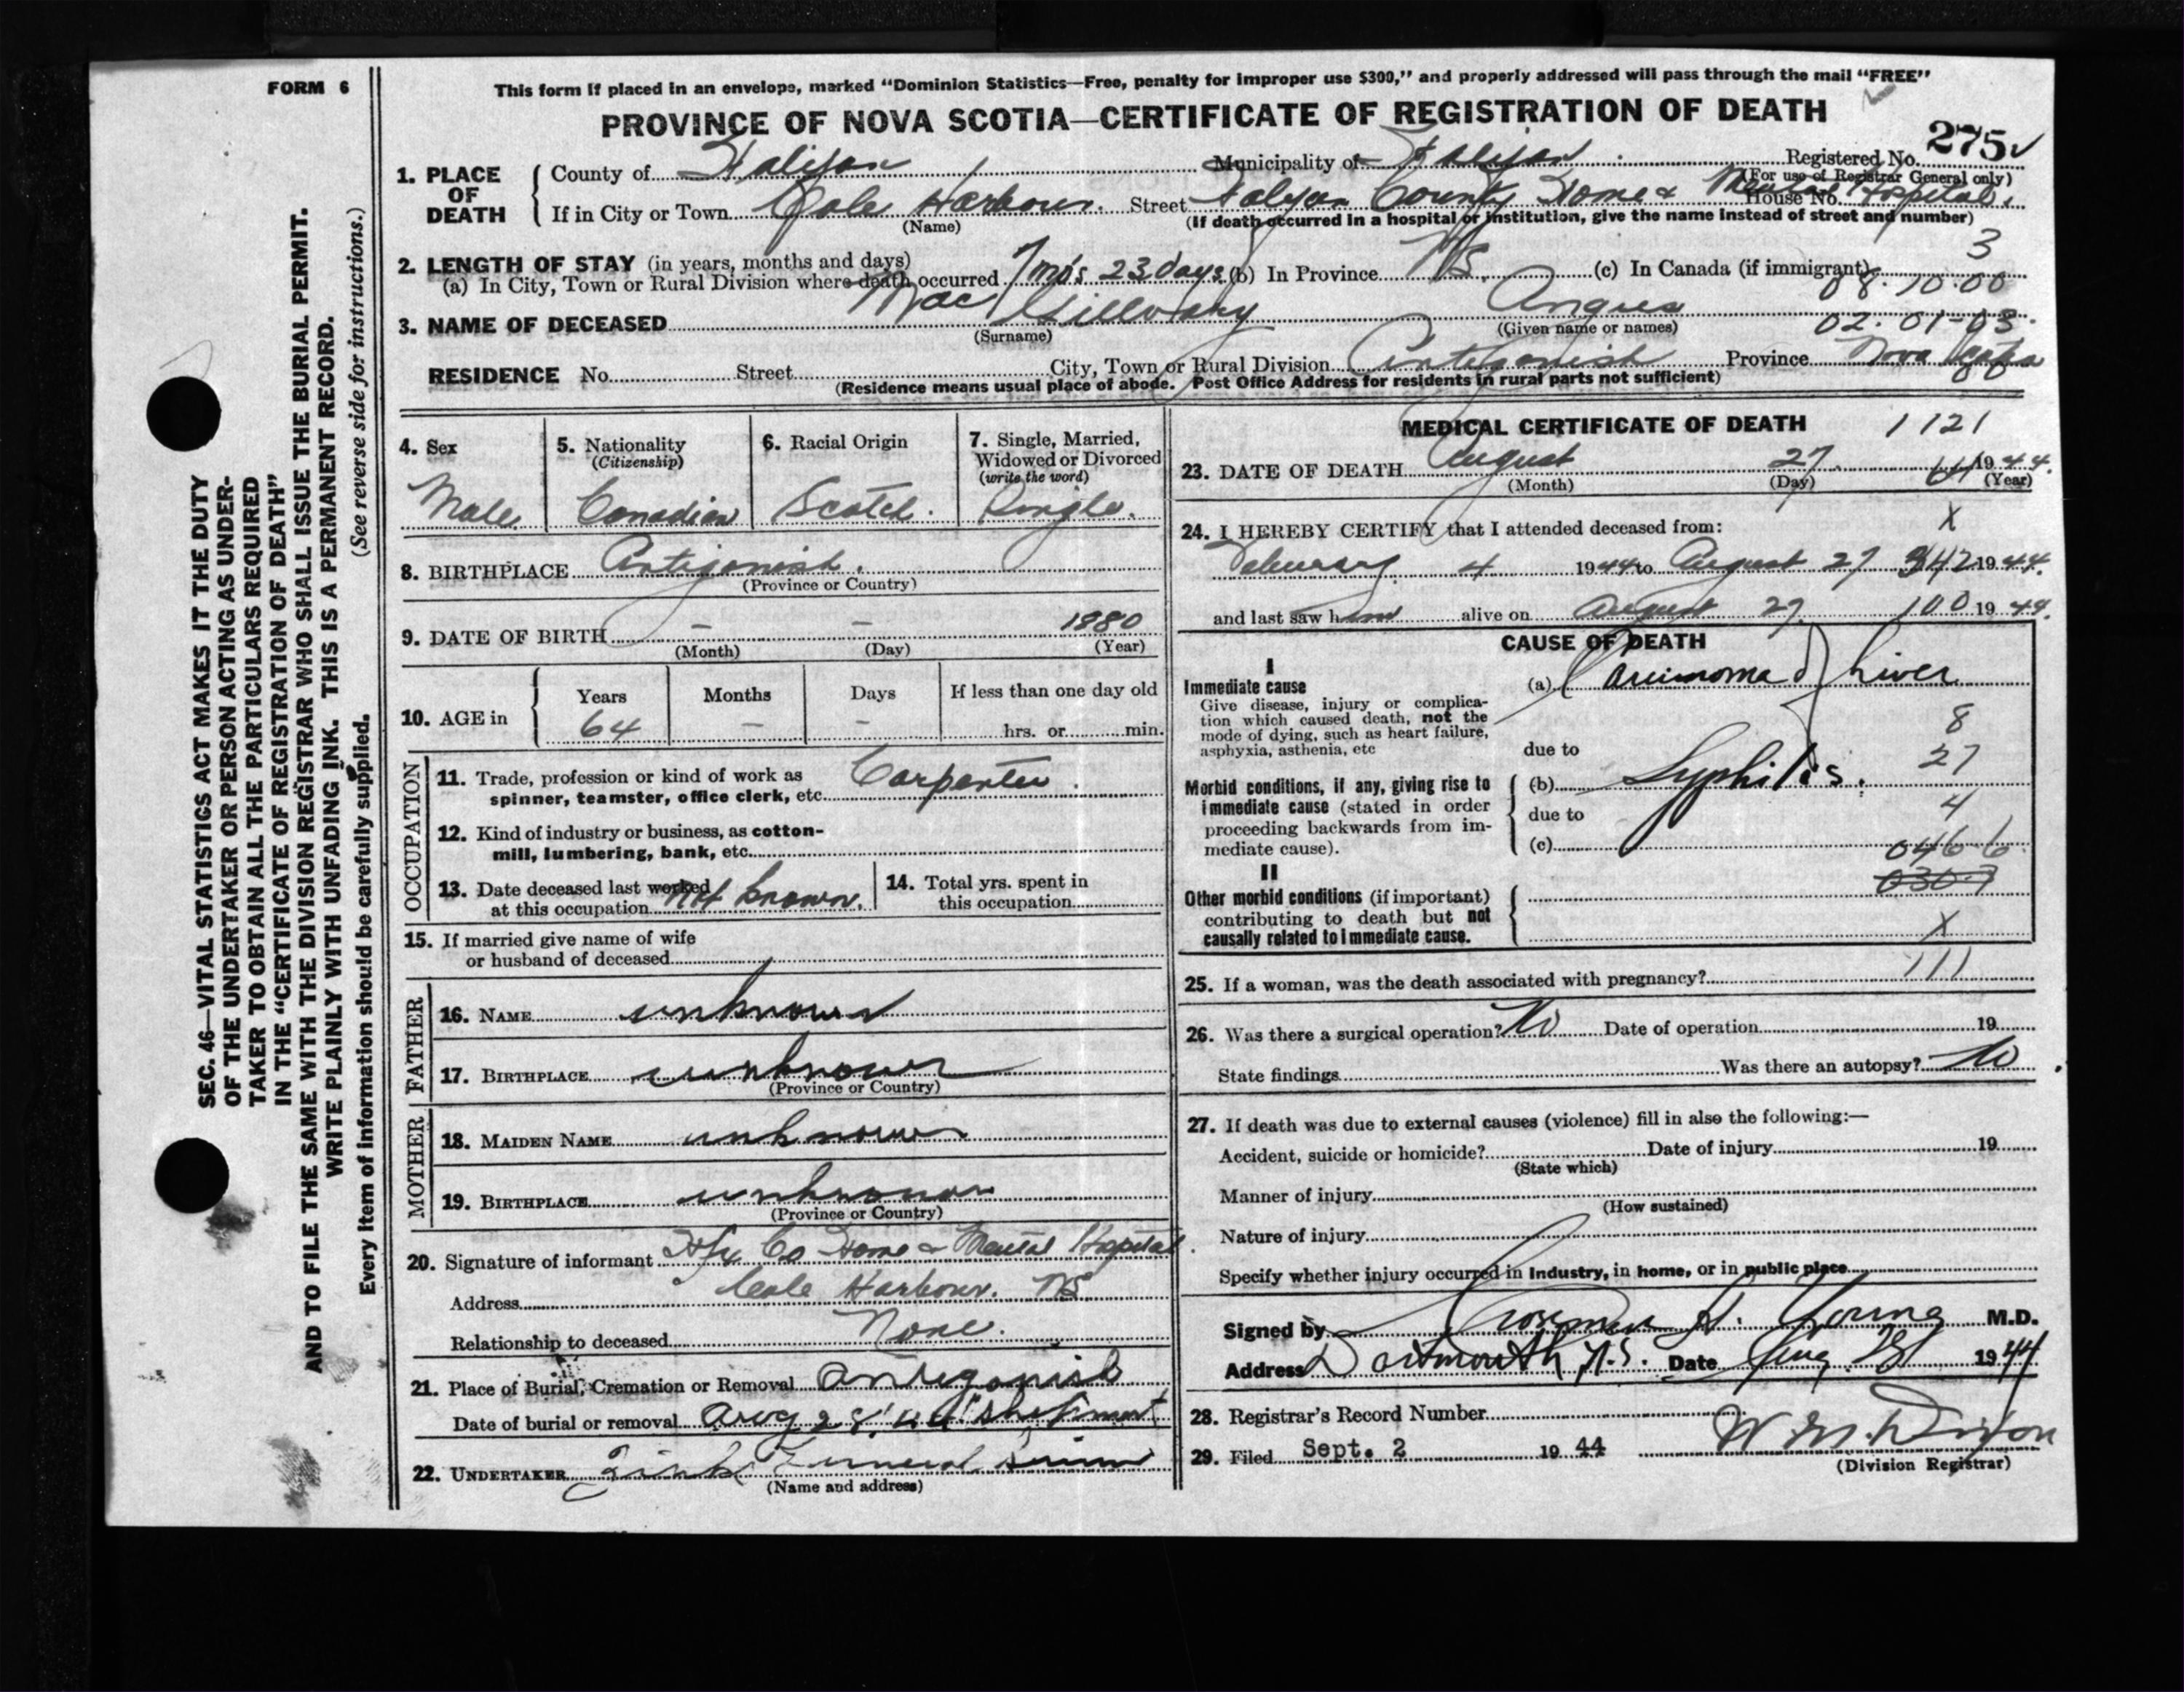 FORM 6
This form if placed in an envelope, marked "Dominion Statistics—Free, penalty for improper use $300," and properly addressed will pass through the mail "FREE"
PROVINCE OF NOVA SCOTIA—CERTIFICATE OF REGISTRATION OF DEATH
275
1. PLACE OF DEATH County of Halifax Municipality of Halifax Registered No.
(For use of Registrar General only)
If in City or Town Cole Harbour. Street Halifax County Home & Mental Hospital. House No.
(Name) (If death occurred in a hospital or institution, give the name instead of street and number)
3
2. LENGTH OF STAY (in years, months and days)
(a) In City, Town or Rural Division where death occurred 7 mo's 23 days (b) In Province NS. (c) In Canada (if immigrant)
08.10.00
3. NAME OF DECEASED MacGillvary Angus
(Surname) (Given name or names) 02.01-03.
RESIDENCE No. Street City, Town or Rural Division Antigonish Province Nova Scotia
(Residence means usual place of abode. Post Office Address for residents in rural parts not sufficient)
4. Sex 5. Nationality (Citizenship) 6. Racial Origin 7. Single, Married, Widowed or Divorced (write the word)
Male Canadian Scotch. Single.
8. BIRTHPLACE Antigonish.
(Province or Country)
9. DATE OF BIRTH - - 1880
(Month) (Day) (Year)
10. AGE in Years Months Days If less than one day old
64 - - hrs. or min.
OCCUPATION
11. Trade, profession or kind of work as spinner, teamster, office clerk, etc. Carpenter.
12. Kind of industry or business, as cotton-mill, lumbering, bank, etc.
13. Date deceased last worked at this occupation Not known.
14. Total yrs. spent in this occupation
15. If married give name of wife or husband of deceased
FATHER
16. NAME unknown
17. BIRTHPLACE unknown
(Province or Country)
MOTHER
18. MAIDEN NAME unknown
19. BIRTHPLACE unknown
(Province or Country)
20. Signature of informant Hfx Co Home & Mental Hospital.
Address Cole Harbour. NS
Relationship to deceased None.
21. Place of Burial, Cremation or Removal Antigonish
Date of burial or removal Aug 28, 44 Shipment
22. UNDERTAKER Funeral
(Name and address)
MEDICAL CERTIFICATE OF DEATH 1121
23. DATE OF DEATH August 27. 1944.
(Month) (Day) (Year)
24. I HEREBY CERTIFY that I attended deceased from: X
February 4 1944 to August 27 1944.
and last saw him alive on August 27. 100 1944.
CAUSE OF DEATH
I
Immediate cause (a) Carcinoma of Liver
Give disease, injury or complication which caused death, not the mode of dying, such as heart failure, asphyxia, asthenia, etc
8
due to
27
Morbid conditions, if any, giving rise to immediate cause (stated in order proceeding backwards from immediate cause).
(b) Syphilis.
4
due to
(c) 046.6
030.7
II
Other morbid conditions (if important) contributing to death but not causally related to immediate cause.
X
111
25. If a woman, was the death associated with pregnancy?
26. Was there a surgical operation? No Date of operation 19
State findings Was there an autopsy? No
27. If death was due to external causes (violence) fill in also the following:—
Accident, suicide or homicide? Date of injury 19
(State which)
Manner of injury
(How sustained)
Nature of injury
Specify whether injury occurred in industry, in home, or in public place
Signed by H. Young M.D.
Address Dartmouth N.S. Date Aug 28 1944
28. Registrar's Record Number
29. Filed Sept. 2 19 44 W M. Dixon
(Division Registrar)
SEC. 46—VITAL STATISTICS ACT MAKES IT THE DUTY
OF THE UNDERTAKER OR PERSON ACTING AS UNDER-
TAKER TO OBTAIN ALL THE PARTICULARS REQUIRED
IN THE "CERTIFICATE OF REGISTRATION OF DEATH"
AND TO FILE THE SAME WITH THE DIVISION REGISTRAR WHO SHALL ISSUE THE BURIAL PERMIT.
WRITE PLAINLY WITH UNFADING INK. THIS IS A PERMANENT RECORD.
Every item of information should be carefully supplied. (See reverse side for instructions.)